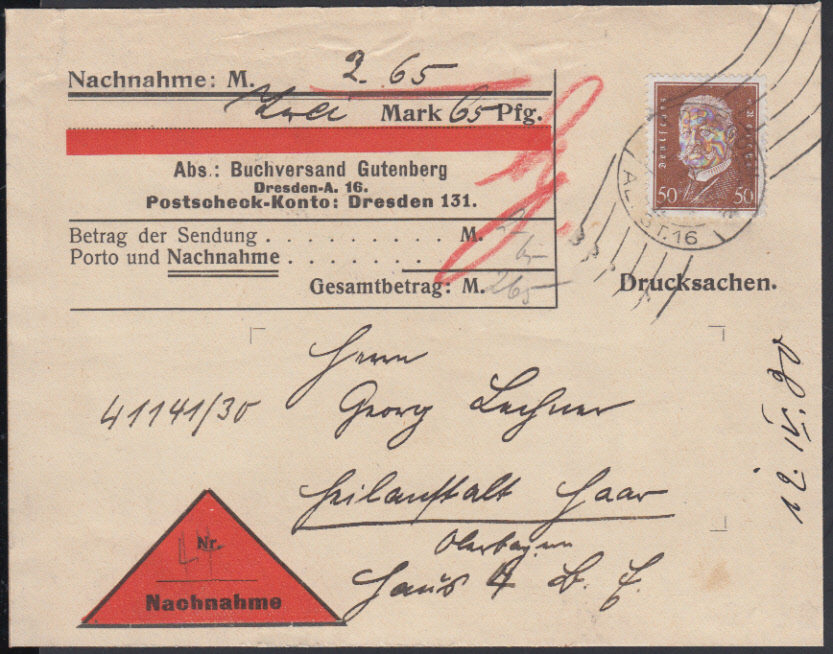 Nachnahme: M. 2.65
Zwei Mark 65 Pfg.
Abs.: Buchversand Gutenberg
Dresden-A. 16.
Postscheck-Konto: Dresden 131.
Betrag der Sendung . . . . . . . . . . M. 2
Porto und Nachnahme . . . . . . . . 65
Gesamtbetrag: M. 265
50 50
ALTST. 16
Drucksachen.
Herrn
41141/30 Georg Lechner
Heilanstalt Haar
Oberbayern
Haus 4 B. F.
Nr.
Nachnahme
12. IV. 30